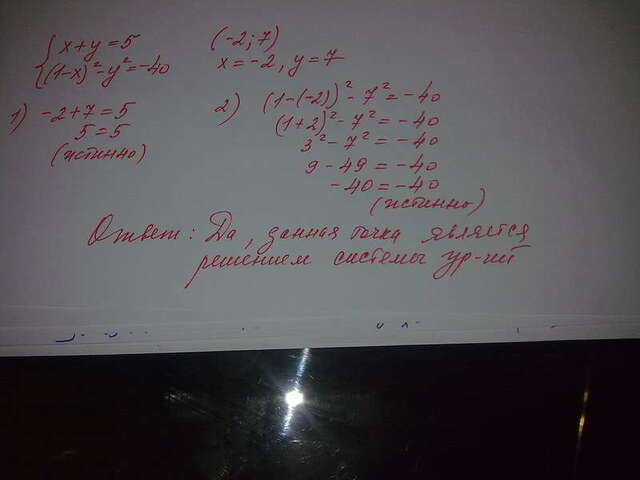 { x+y=5
(1-x)²-y²=-40
(-2;7)
x=-2, y=7
1) -2+7=5
5=5
(истинно)
2) (1-(-2))²-7²=-40
(1+2)²-7²=-40
3²-7²=-40
9-49=-40
-40=-40
(истинно)
Ответ: Да, данная точка является
решением системы ур-ний